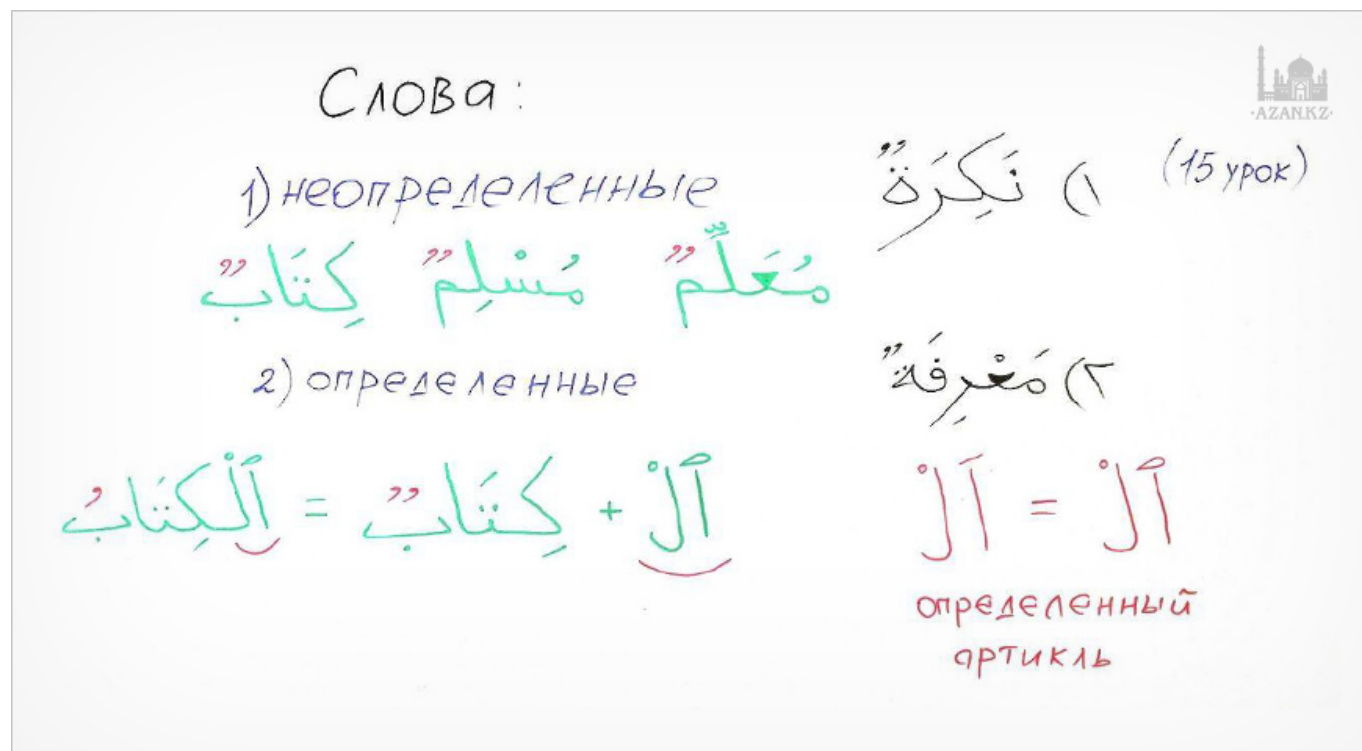 Слова:
·AZAN.KZ·
1) неопределенные
١) نَكِرَةٌ
(15 урок)
مُعَلِّمٌ مُسْلِمٌ كِتَابٌ
2) определенные
٢) مَعْرِفَةٌ
ٱلْ + كِتَابٌ = ٱلْكِتَابُ
ٱلْ = اَلْ
определенный
артикль